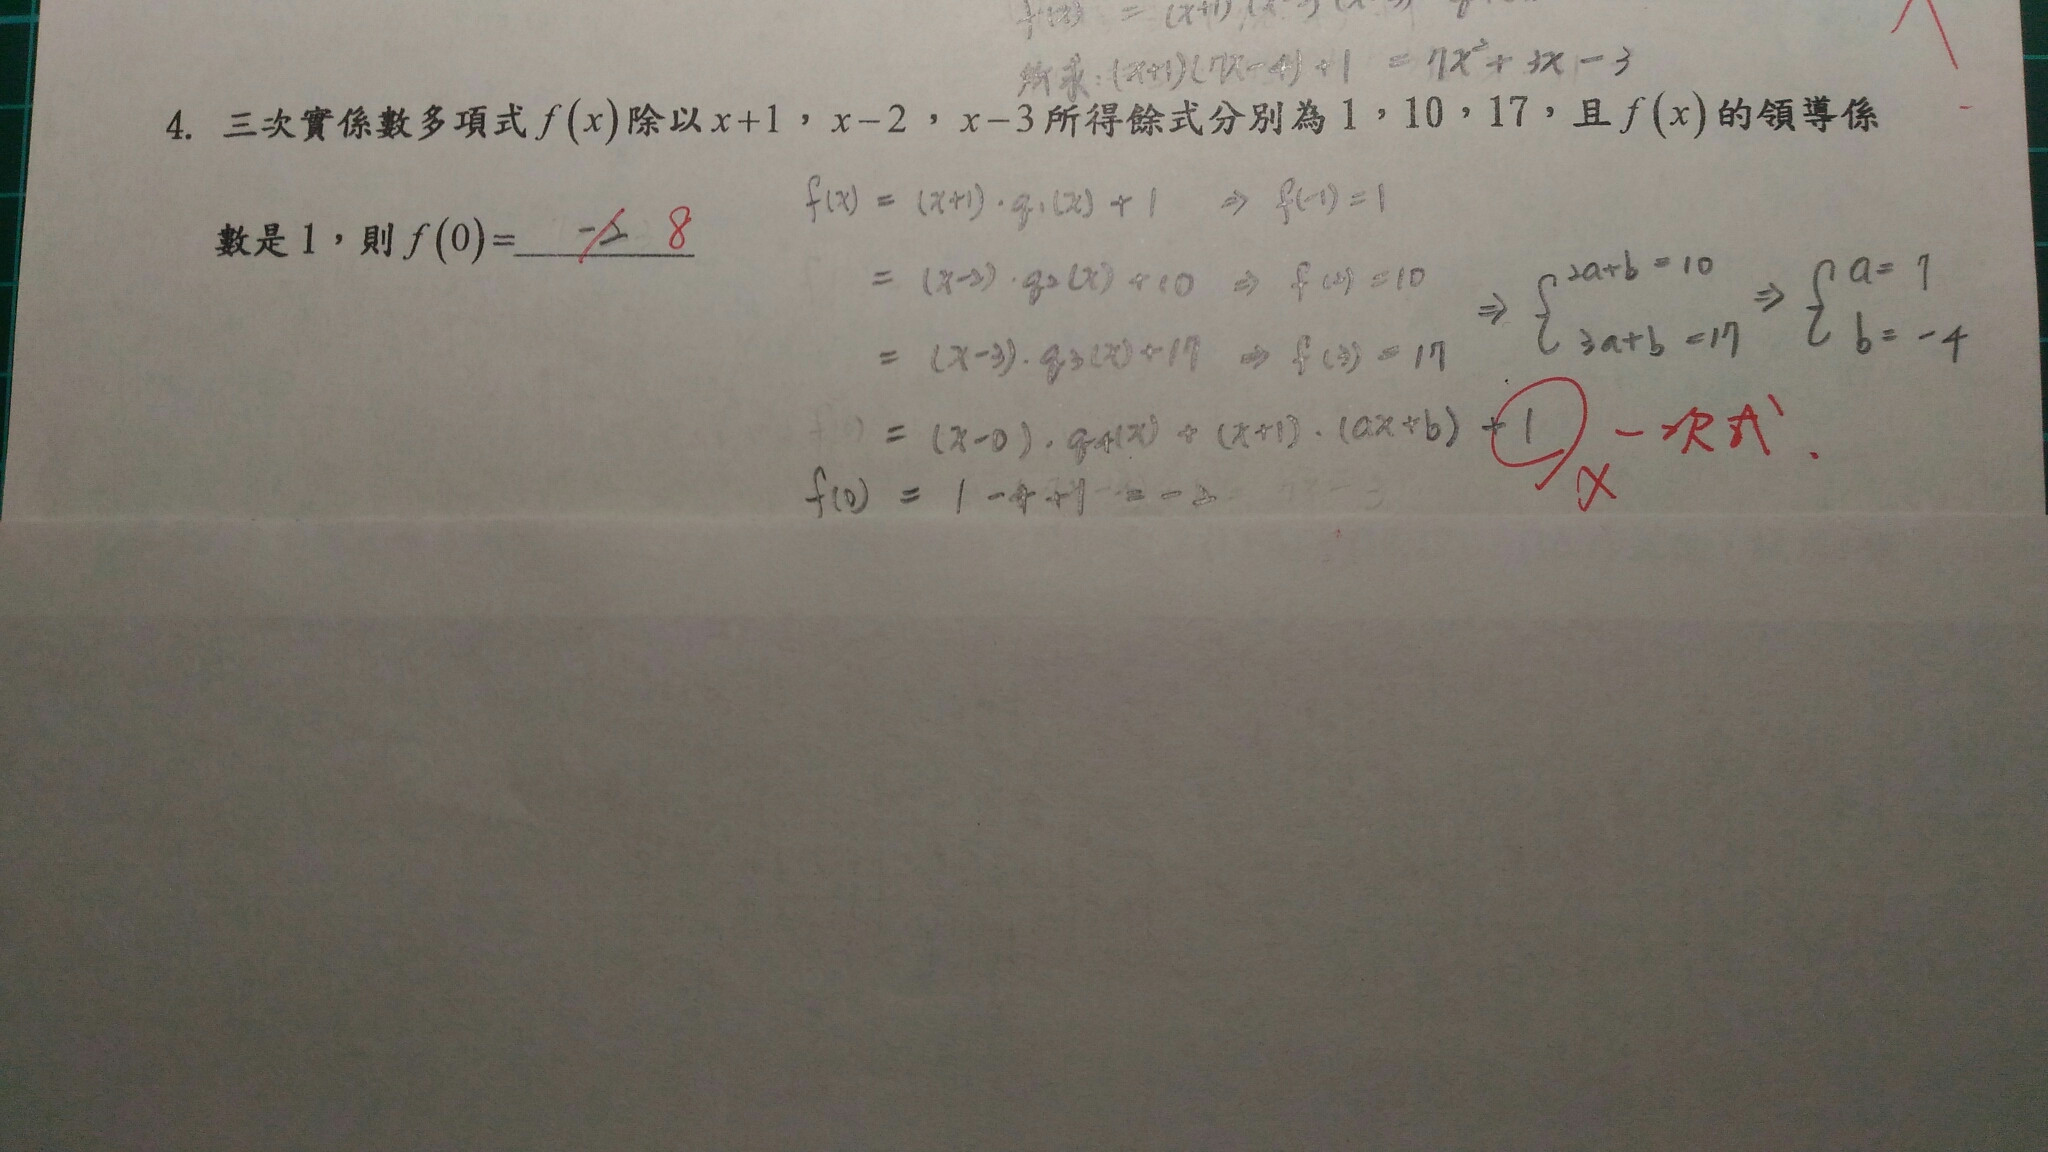 所求:(x+1)(7x-4)+1 = 7x²+3x-3
4. 三次實係數多項式 f(x) 除以 x+1，x-2，x-3 所得餘式分別為 1，10，17，且 f(x) 的領導係
數是 1，則 f(0)= -2 8
f(x) = (x+1)·q₁(x)+1 ⇒ f(-1)=1
= (x-2)·q₂(x)+10 ⇒ f(2)=10
= (x-3)·q₃(x)+17 ⇒ f(3)=17
⇒ { 2a+b=10
3a+b=17
⇒ { a=7
b=-4
= (x-0)·q₄(x)+(x+1)·(ax+b)+1
x 一次式.
f(0) = 1-4+1=-2